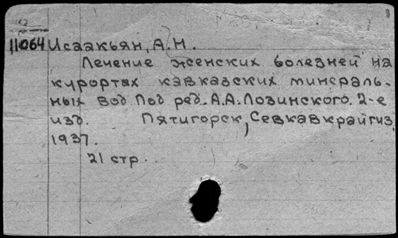 11064 Исаакьян, А.Н.
Лечение женских болезней на
курортах кавказских минераль-
ных вод Под ред. А.А.Лозинского. 2-е
изд. Пятигорск, Севкавкрайгиз,
1937.
21 стр.